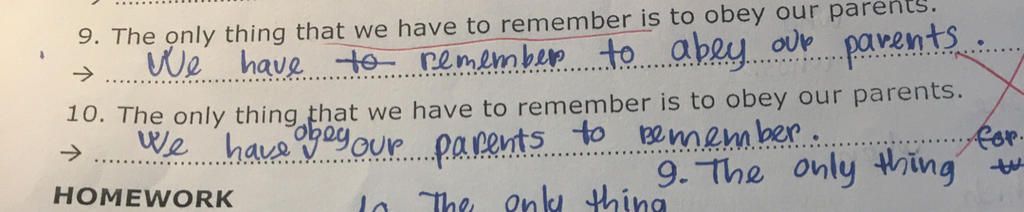 9. The only thing that we have to remember is to obey our parents.
→ We have to remember to abey our parents.
10. The only thing that we have to remember is to obey our parents.
→ We have obey our parents to remember. for
9. The only thing
HOMEWORK
The only thing